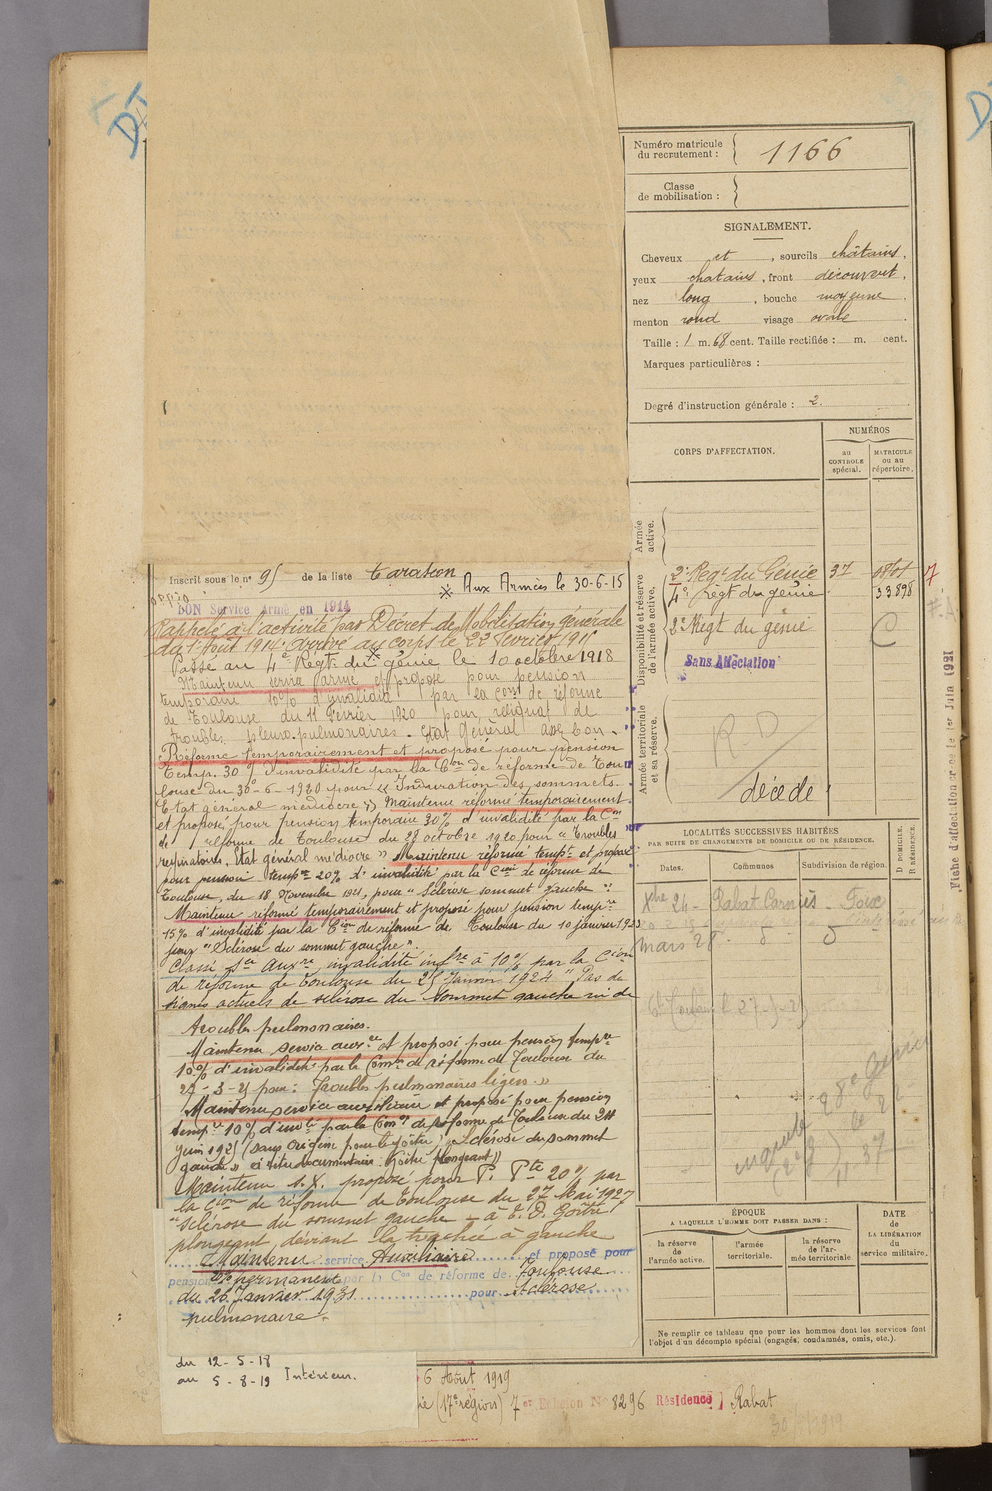 Numéro matricule
du recrutement : 1166
Classe
de mobilisation :
SIGNALEMENT.
Cheveux et , sourcils châtains,
yeux chatains , front découvert ,
nez long , bouche moyenne .
menton rond visage ovale .
Taille : 1 m. 68 cent. Taille rectifiée : m. cent.
Marques particulières :
Degré d'instruction générale : 2.
CORPS D'AFFECTATION.
NUMÉROS
au
CONTROLE
spécial.
MATRICULE
ou au
répertoire.
Armée
active.
Disponibilité et réserve
de l'armée active.
2e Regt du Génie 37
4e Régt du génie 33898
2e Regt du génie
Sans Affectation
Armée territoriale
et sa réserve.
R D
décédé
LOCALITÉS SUCCESSIVES HABITÉES
PAR SUITE DE CHANGEMENTS DE DOMICILE OU DE RÉSIDENCE.
D DOMICILE.
R RÉSIDENCE.
Dates.
Communes
Subdivision de région.
Xbre 24 - Rabat Foix
Mars 28.
ÉPOQUE
A LAQUELLE L'HOMME DOIT PASSER DANS :
la réserve
de
l'armée active.
l'armée
territoriale.
la réserve
de l'ar-
mée territoriale.
DATE
de
LA LIBÉRATION
du
service militaire.
Ne remplir ce tableau que pour les hommes dont les services font
l'objet d'un décompte spécial (engagés, condamnés, omis, etc.).
Fiche d'affectation créée le 1er Juin 1921
Inscrit sous le n° 95 de la liste Tarascon
* Aux Armées le 30-6-15
BON Service Armé en 1914
Rappelé à l'activité par Décret de Mobilisation générale
du 1er Août 1914. Arrivé au corps le 22 février 1915
Passé au 4e Régt. du génie le 10 octobre 1918
Maintenu service armé et proposé pour pension
temporaire 10% d'invalidité par la Con de réforme
de Toulouse du 11 Février 1920 pour reliquat de
troubles pleuro-pulmonaires. Etat Général assez bon.
Réformé temporairement et proposé pour pension
temp. 30% d'invalidité par la Con de réforme de Tou
louse du 30-6-1920 pour "Induration des sommets.
Etat général médiocre". Maintenu réformé temporairement
et proposé pour pension temporaire 30% d'invalidité par la Con
de réforme de Toulouse du 28 octobre 1920 pour "Troubles
respiratoires. Etat général médiocre" Maintenu réformé tempt et proposé
pour pension tempre 20% d'invalidité par la Con de réforme de
Toulouse, du 18 Novembre 1921, pour "Sclérose sommet gauche".
Maintenu réformé temporairement et proposé pour pension tempre
15% d'invalidité par la Con de réforme de Toulouse du 10 janvier 1923
pour "Sclérose du sommet gauche".
Classé Sce Auxre invalidité infre à 10% par la Cion
de réforme de Toulouse du 25 Janvier 1924 "Pas de
signes actuels de sclérose du sommet gauche ni de
troubles pulmonaires.
Maintenu service auxre et proposé pour pension tempre
10% d'invalidité par la Comon de réforme de Toulouse du
27-3-25 pour : Troubles pulmonaires légers."
Maintenu service auxiliaire et proposé pour pension
tempre 10% d'invté par la Comon de réforme de Toulouse du 24
juin 1925 (sans origine pour le goitre) "Sclérose du sommet
gauche" à titre documentaire : Goitre plongeant"
Maintenu S. X. proposé pour P. Pte 20% par
la Cion de réforme de Toulouse du 27 Mai 1927
"Sclérose du sommet gauche - à T. D. Goitre
plongeant, déviant la trachée à gauche
Maintenu service Auxiliaire et proposé pour
pension permanente par la Con de réforme de Toulouse
du 26 Janvier 1931 pour Sclérose
pulmonaire.
du 12-5-18
au 5-8-19 Intérieur.
6 Août 1919
(17e région) 7 er Echelon No 8296 Résidence Rabat